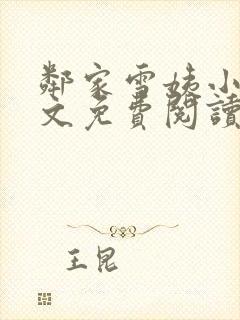 鄰家雪姨小
文免費閱讀
王昆